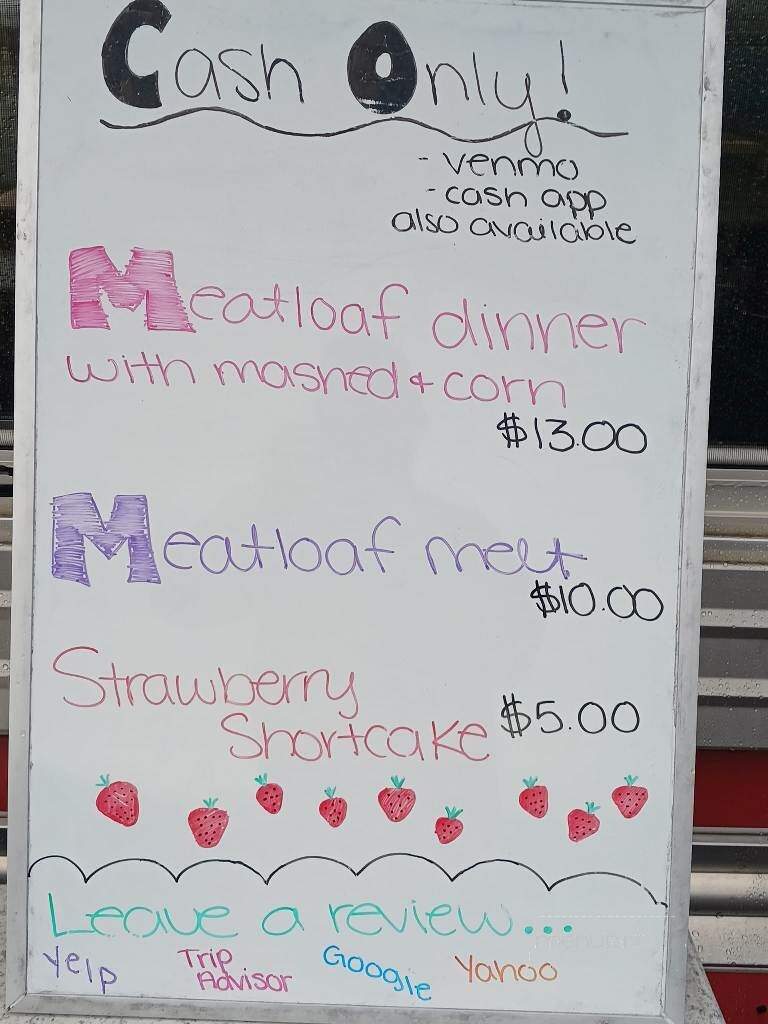 Cash Only!
- venmo
- cash app
also available
Meatloaf dinner
with mashed & corn
$13.00
Meatloaf melt
$10.00
Strawberry
Shortcake $5.00
Leave a review...
Yelp Trip Advisor Google Yahoo